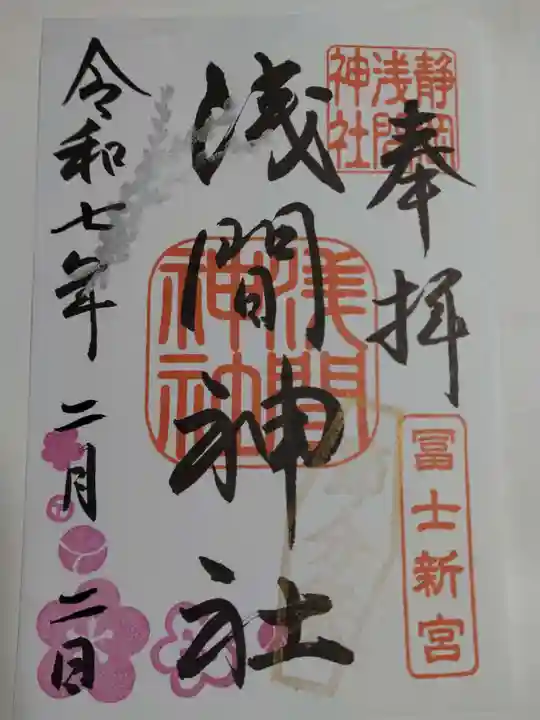 奉拝
静岡
浅間
神社
冨士新宮
浅間神社
浅間
神社
令和七年二月二日